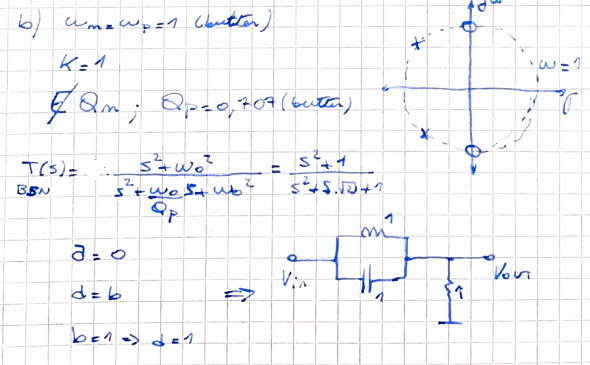 b) ωn=ωp=1 (butter)
jω
K=1
ω=1
σ
∄ Qn ; Qp=0,707 (butter)
T(s)= (s²+ω0²)/(s²+(ω0/Qp)s+ω0²) = (s²+1)/(s²+s.√2+1)
BSN
a=0
d=b
⇒
b=1 ⇒ d=1
1
Vin
1
1
Vout